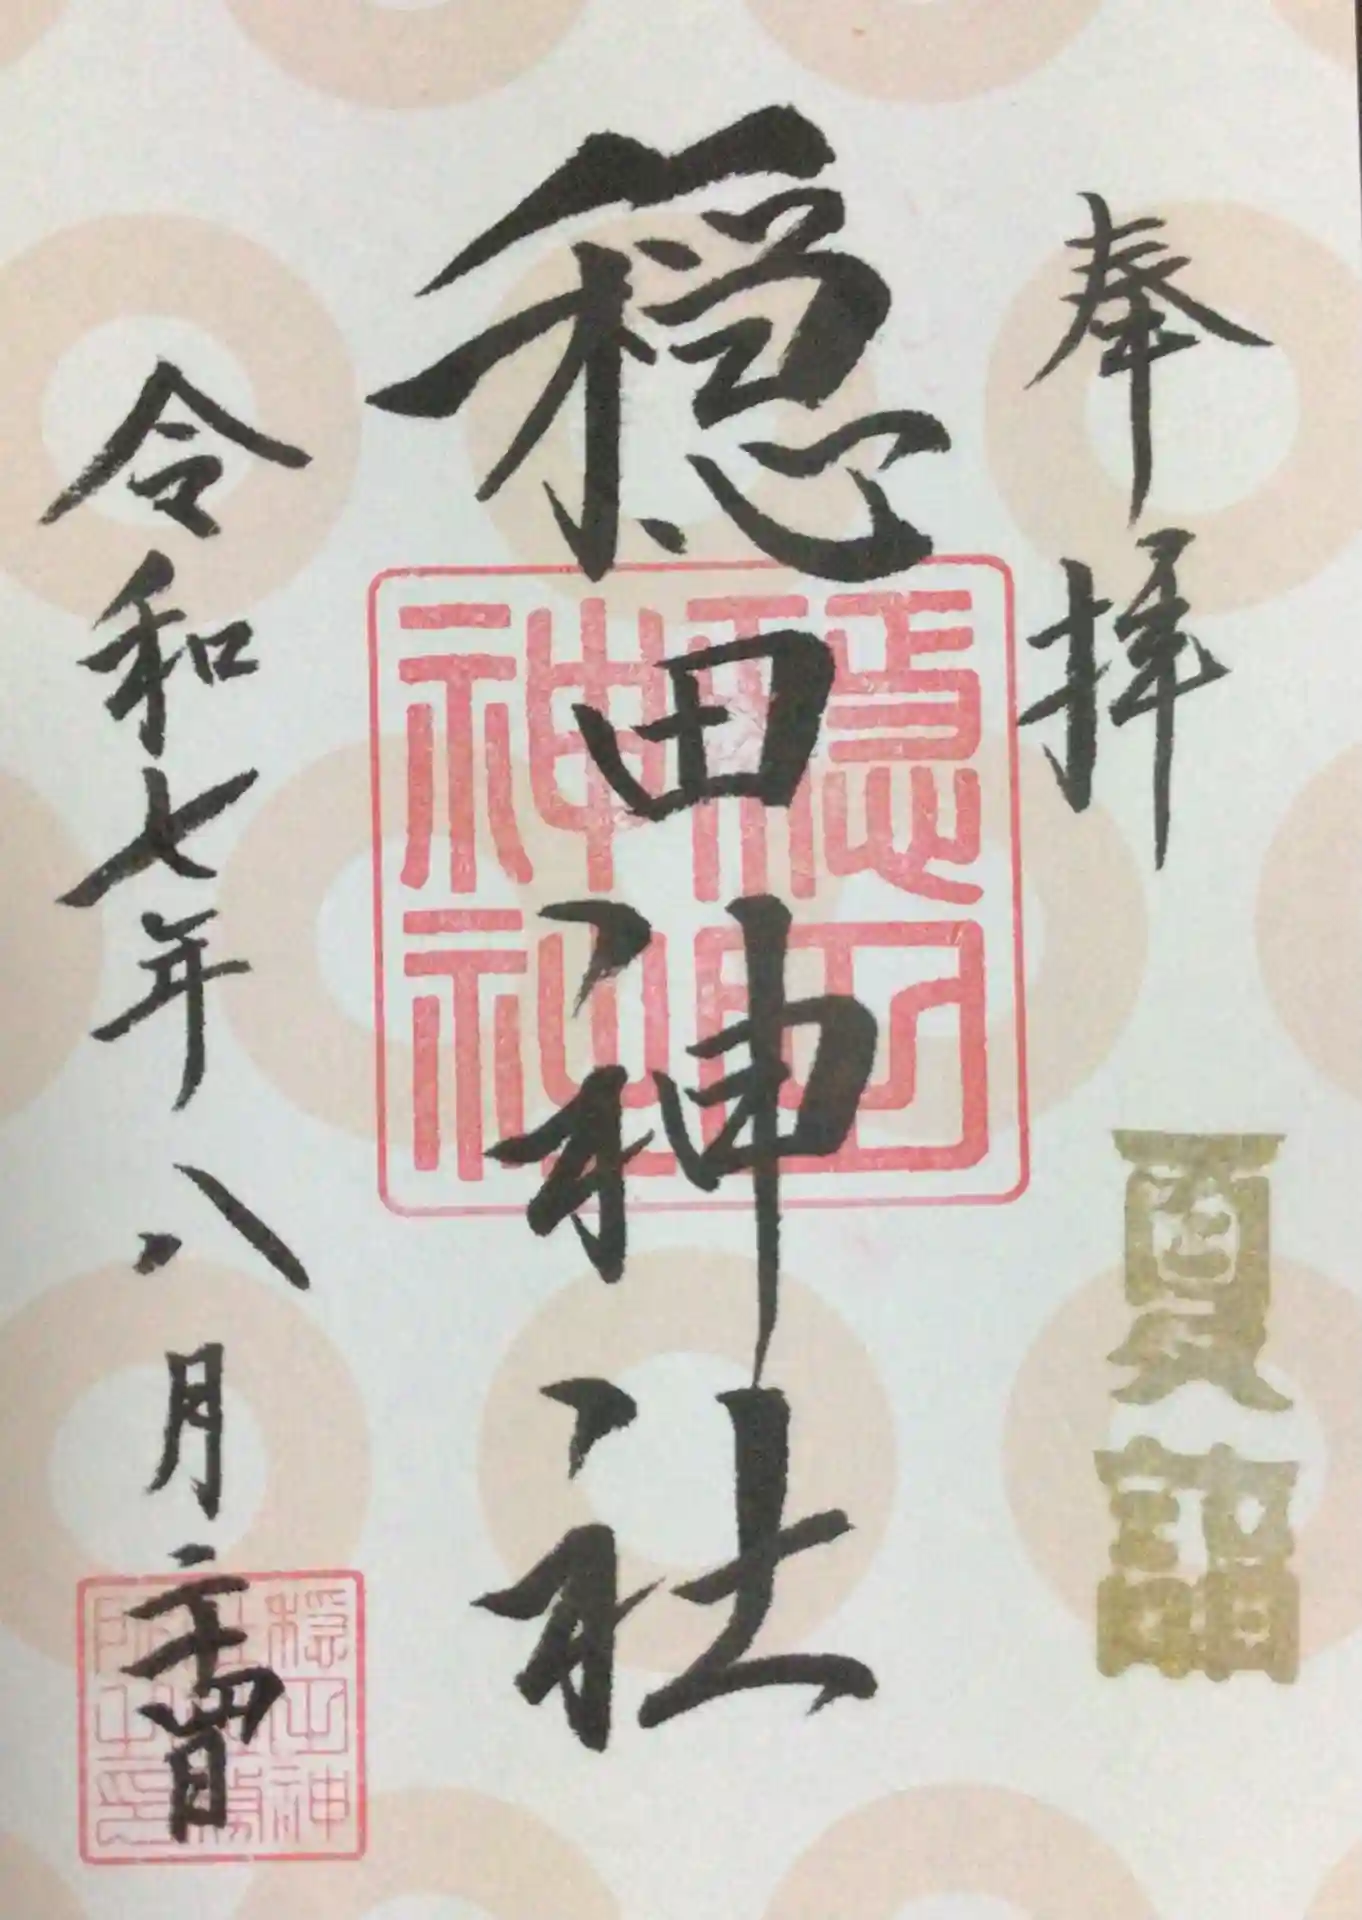 奉拝
夏詣
穏田神社
穏田
神社
令和七年八月二十四日